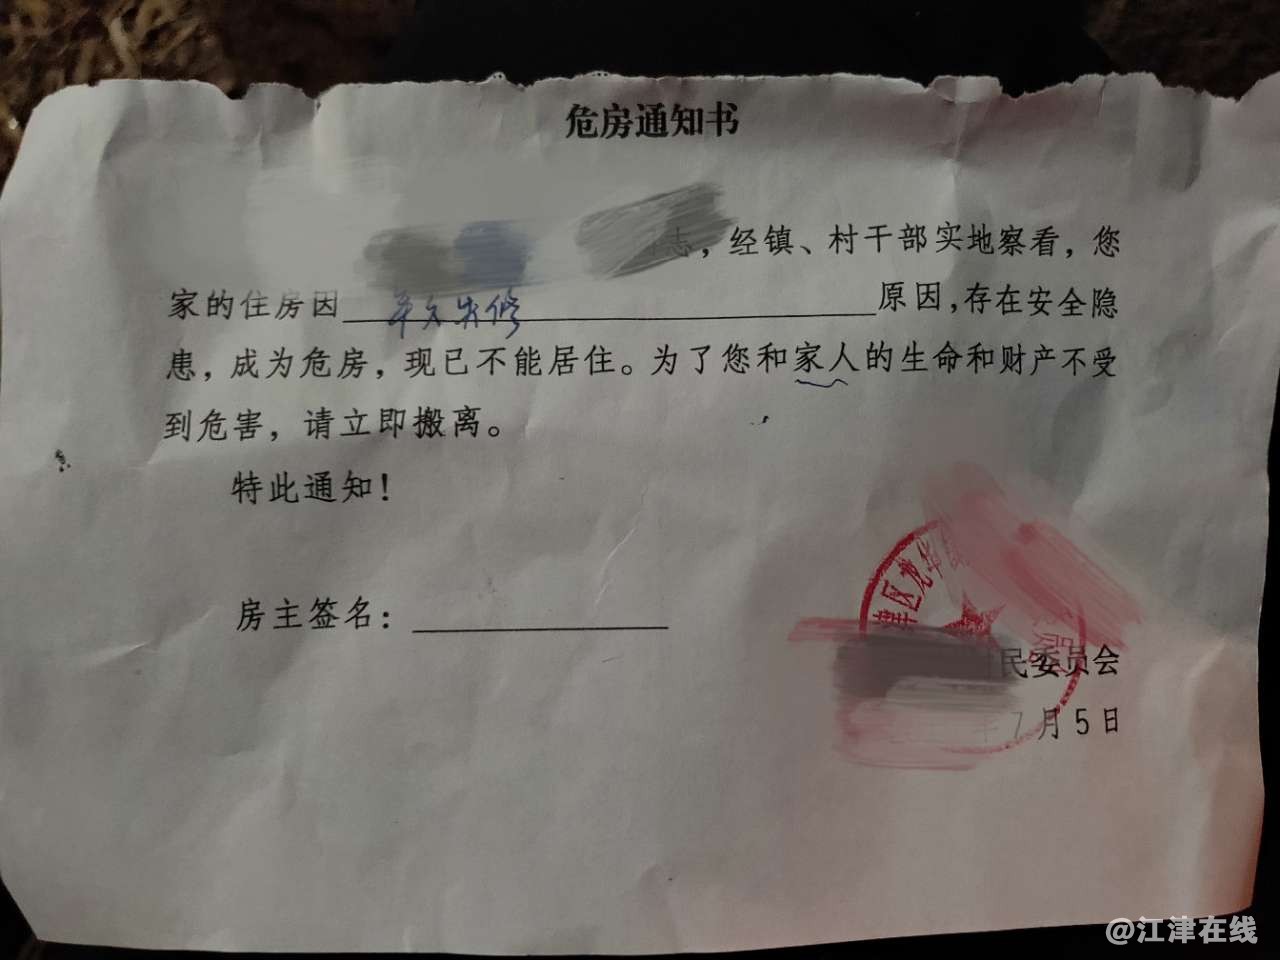 危房通知书
志，经镇、村干部实地察看，您
家的住房因年久失修原因，存在安全隐
患，成为危房，现已不能居住。为了您和家人的生命和财产不受
到危害，请立即搬离。
特此通知！
津区龙华
房主签名：
民委员会
7月5日
@江津在线